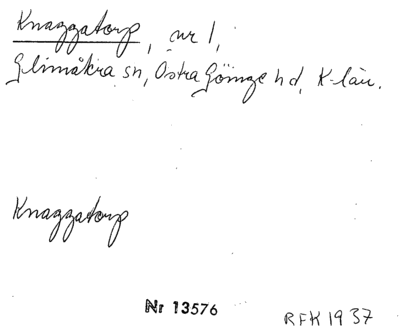 Knaggatorp, nr 1,
Glimåkra sn, Östra Göinge hd, K-län.
Knaggatorp
Nr 13576
RFK 1937